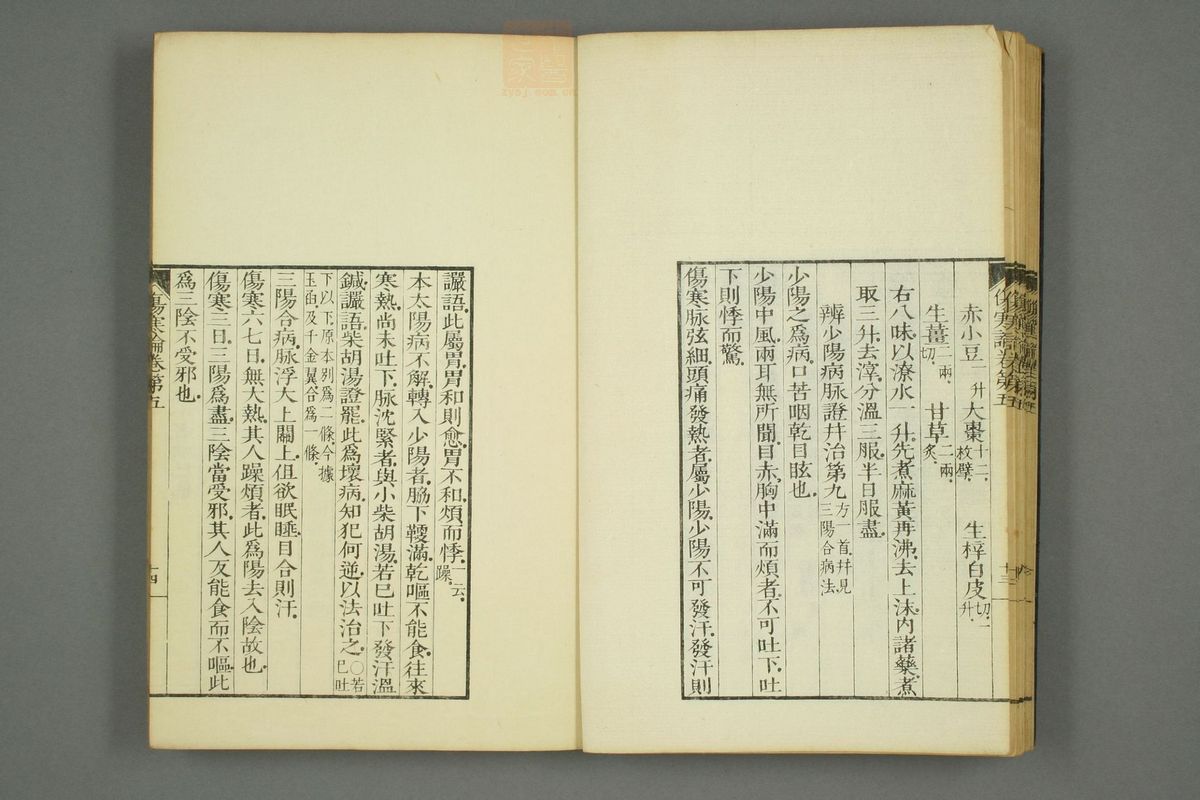 赤小豆一升 大棗十二枚、擘、 生梓白皮切、一升、
生薑二兩、切、 甘草二兩、炙、
右八味、以潦水一斗、先煮麻黃再沸、去上沫、內諸藥、煮
取三升、去滓、分溫三服、半日服盡、
辨少陽病脉證幷治第九方一首、幷見三陽合病法
少陽之爲病、口苦咽乾目眩也、
少陽中風、兩耳無所聞、目赤、胸中滿而煩者、不可吐下、吐
下則悸而驚、
傷寒、脉弦細、頭痛發熱者、屬少陽、少陽不可發汗、發汗則
傷寒論卷第五
十三
讝語、此屬胃、胃和則愈、胃不和、煩而悸、一云、躁、
本太陽病不解、轉入少陽者、脇下鞕滿、乾嘔不能食、往來
寒熱、尚未吐下、脉沈緊者、與小柴胡湯、若已吐下發汗溫
鍼、讝語、柴胡湯證罷、此爲壞病、知犯何逆、以法治之、〇若已吐
下以下、原本別爲二條、今據玉函、及千金翼、合爲一條、
三陽合病、脉浮大上關上、但欲眠睡、目合則汗、
傷寒六七日、無大熱、其人躁煩者、此爲陽去入陰故也、
傷寒三日、三陽爲盡、三陰當受邪、其人反能食而不嘔、此
爲三陰不受邪也、
傷寒論卷第五
十四